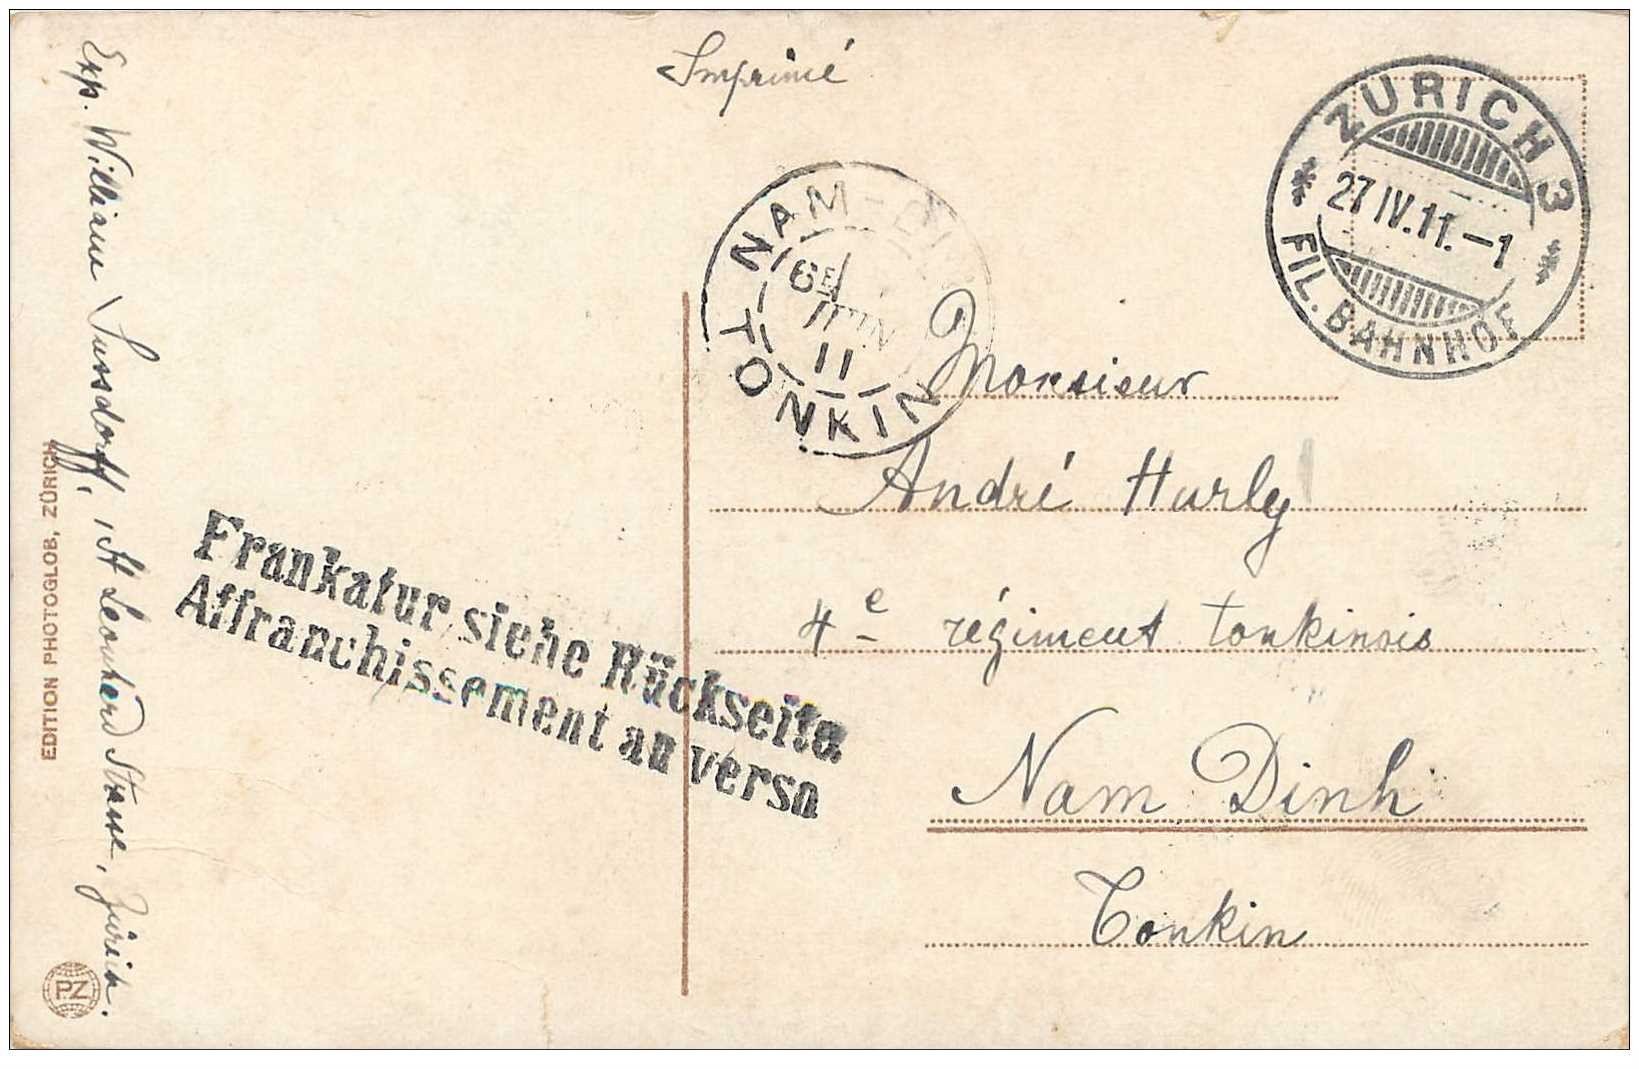 Imprimé
ZURICH 3
27 IV.11.–1
FIL. BAHNHOF
NAM-DIN
JUIN
11
TONKIN
Monsieur
André Hurly
4e régiment tonkinois
Nam Dinh
Tonkin
Frankatur siehe Rückseite
Affranchissement au verso
Exp. William Sussdorff, St Leonhard Strasse, Zürich.
EDITION PHOTOGLOB, ZÜRICH
PZ